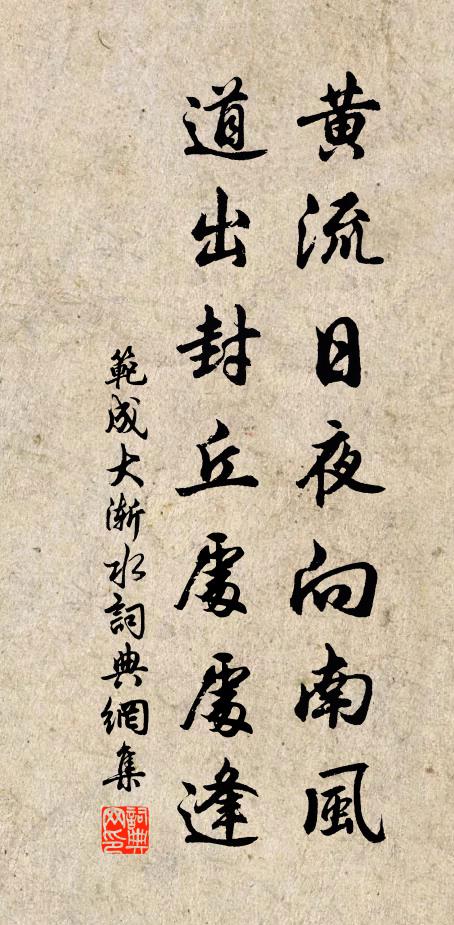 黄流日夜向南風
道出封丘處處逢
範成大漸水詞典網集
詞典網印